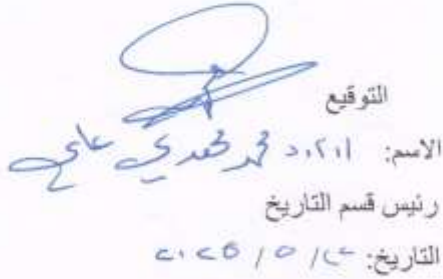 التوقيع
الاسم: ا.م.د محمد مهدي علي
رئيس قسم التاريخ
التاريخ: / ٥ / ٢٠٢٥